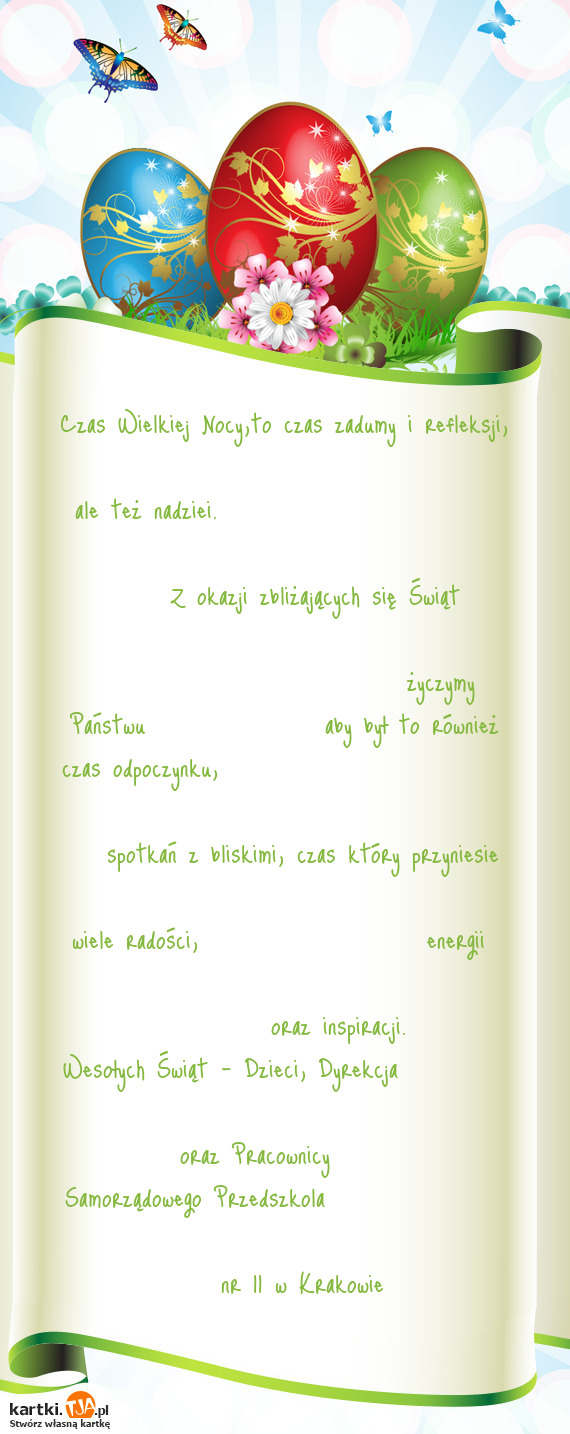 Czas Wielkiej Nocy,to czas zadumy i refleksji,
ale też nadziei.
Z okazji zbliżających się Świąt
życzymy
Państwu aby był to również
czas odpoczynku,
spotkań z bliskimi, czas który przyniesie
wiele radości, energii
oraz inspiracji.
Wesołych Świąt - Dzieci, Dyrekcja
oraz Pracownicy
Samorządowego Przedszkola
nr 11 w Krakowie
kartki.TJA.pl
Stwórz własną kartkę